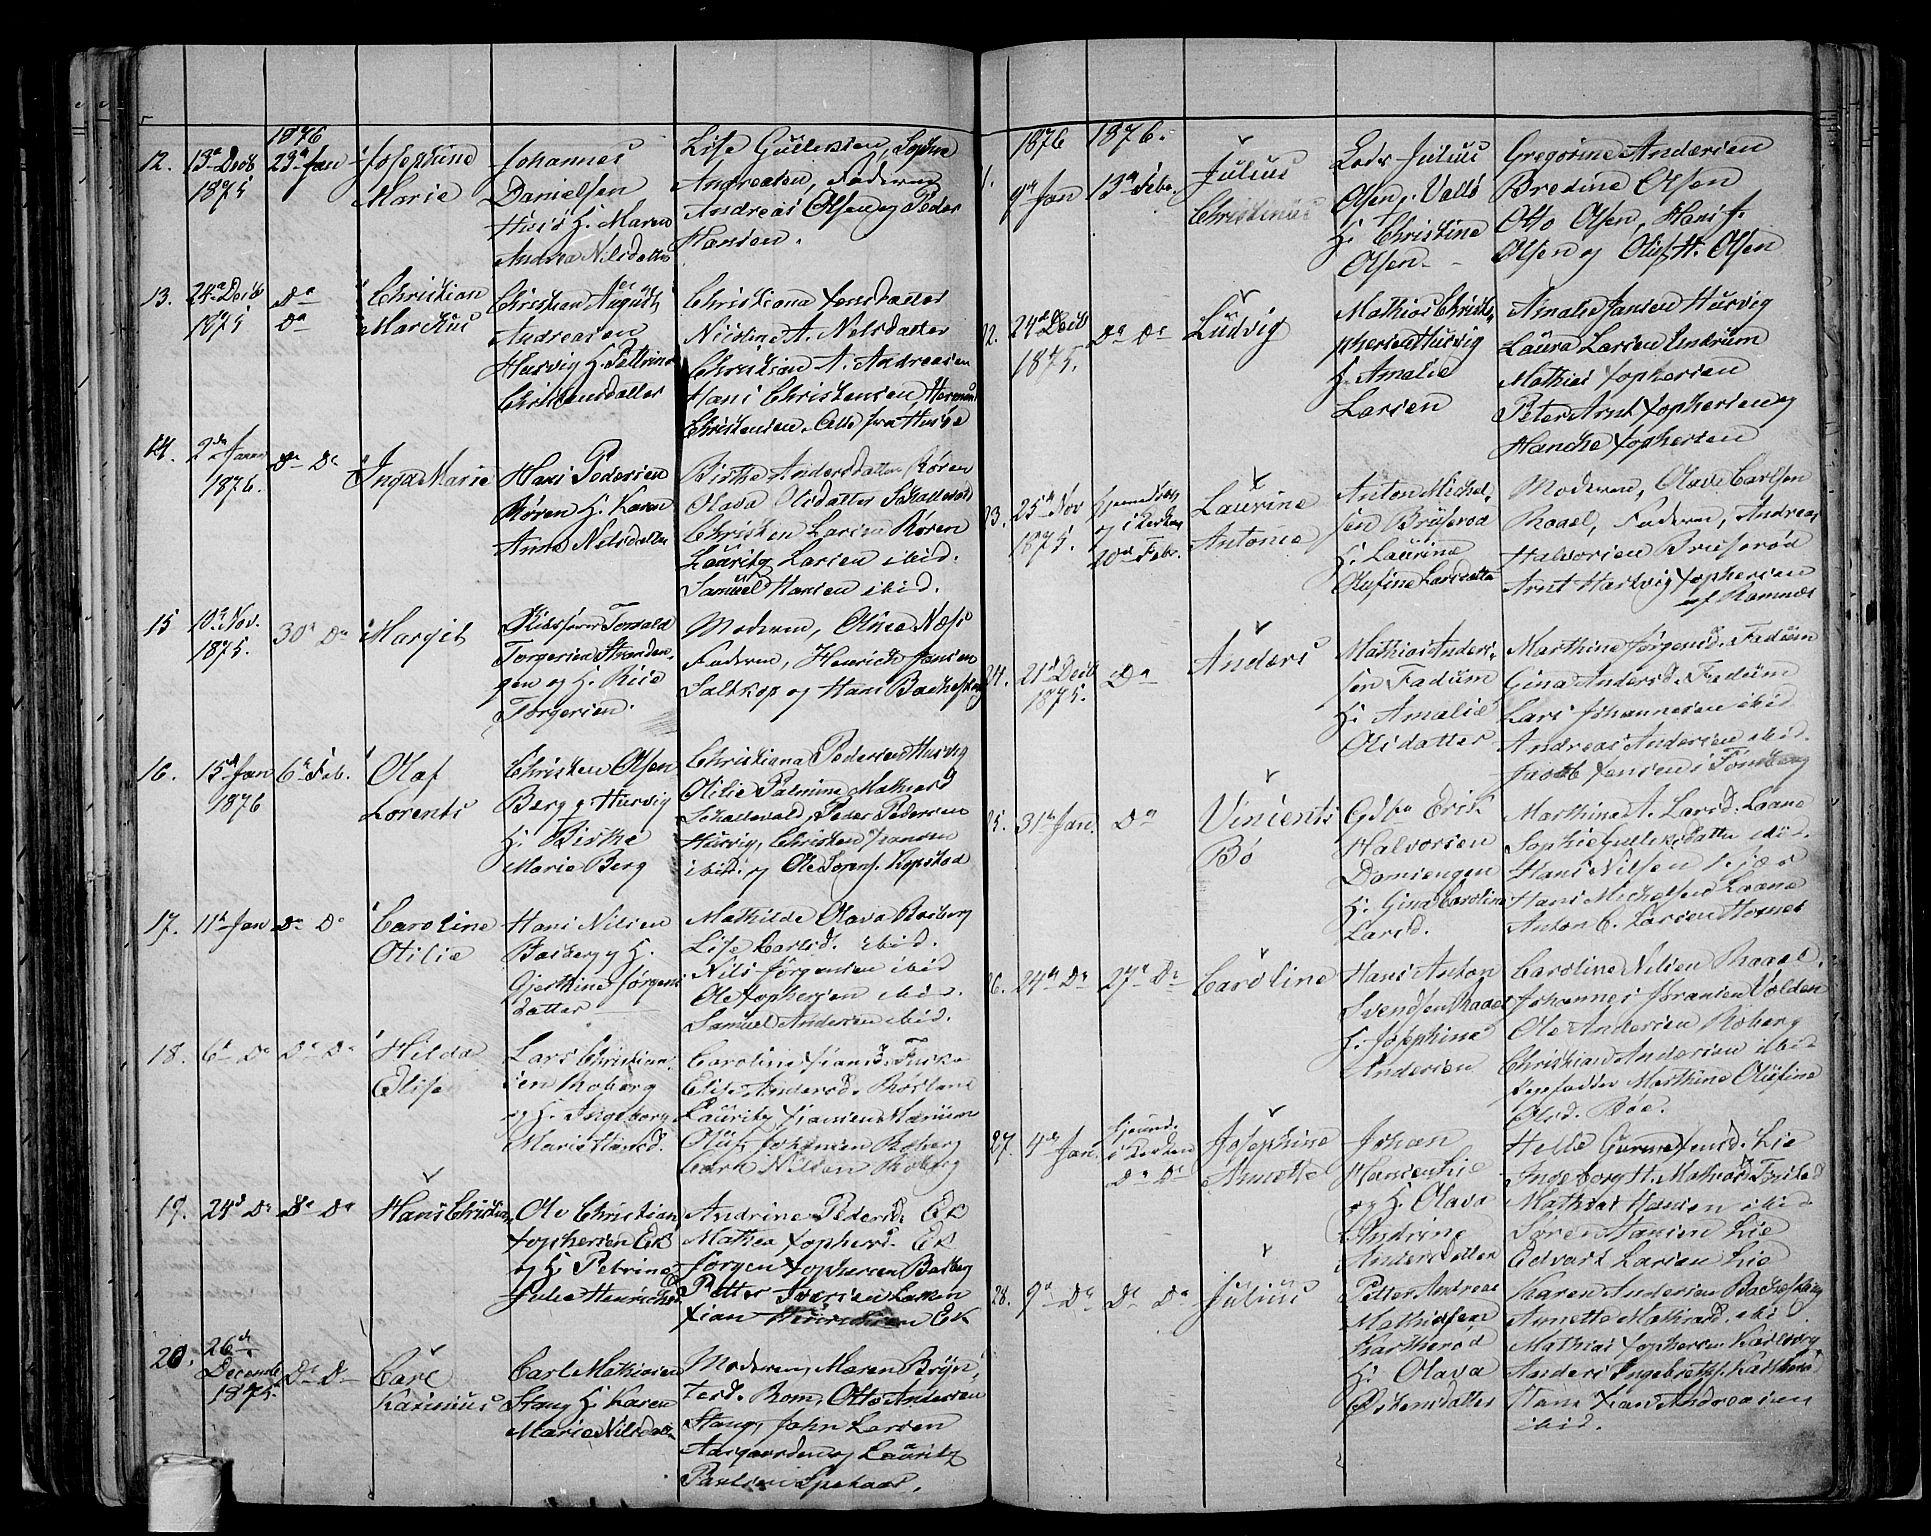 1876
12. 13de Decb 1875 23de Jan Josephine Marie
Johannes
Danielsen
Huis H. Maren
Andrea Nilsdatter
Lise Gullersen, Sophie
Andreasen, Faderen
Andreas Olsen og Peder
Hansen.
13. 24de Decb 1875 Do Do Christian Marckus
Christian August
Andreasen
Husvig H. Pettrine
Christensdatter
Christiana Jonsdatter
Nicoline A. Nelsdatter
Christian A. Andreasen
Hans Christensen, Herman
Christensen. Alle fra Husvig
14. 2den Januar 1876. Do Do Inga Marie
Hans Pedersen
Røren H. Karen
Anne Nelsdatter
Birthe Andersdatter Røren
Olava Olisdatter Schallevold
Christen Larsen Røren
Lauritz Larsen ibid.
Samuel Hansen ibid.
15 10de Nov. 1875. 30de Do Margit
Torvald
Torgersen Stranden-
gen og H.
Torgersen.
Moderen, Olise Næss
Faderen, Henrich Jansen
Saltkop og Hans Bacheskog
16. 15de Jan 1876 6te Feb. Olaf Lorents
Christen Olsen
Berg, Husvig
H. Birthe
Marie Berg
Christiana Pedersen Husvig
Otilie Palmine Mathiasd
Schallevold, Peder Pedersen
Husvig, Christen Fransen
ibid. og Ole Kopstad
17. 11te Jan Do Do Caroline Otilie
Hans Nilsen
Basberg og H.
Gjerthine Jørgens
datter
Mathilde Olava Basberg
Lise Carlsd. ibid.
Nils Jørgensen ibid
Ole Xophersen ibid.
Samuel Andersen ibid.
18. 6te Do Do Do Hilda Elise
Lars Christian-
sen Roberg
og H. Ingeborg
Marie Hansd.
Elise Andersd.
Lauritz Xiansen
Oluf Johansen Roberg
Carl Nilsen Roberg
19. 24de Do Do Do Hans Christian
Ole Christian
Xophersen Ek
og H. Petrine
Julie Henriches
Andrine Pedersd. Ek
Mathea Xophersd. Ek
Jørgen Xophersen Basberg
Petter Iversen Larsen
Xian Henrichsen Ek
20. 26de December 1875. Do Do Carl Kasinius
Carl Mathiesen
Stang H. Karen
Marie Nilsdatter
Moderen, Maren Bryn-
Rom, Otto Andersen
Stang, John Larsen
Aasgaarden og Lauritz
Paulsen
1876 1876.
21. 9de Jan 13de Febr. Julius Christinius
Lods Julius
Olsen, Vallø
H. Christine
Olsen.
Gregorine Andersen
Bredine Olsen
Otto Olsen, Hans J.
Olsen og Oluf H. Olsen
22. 24de Decb 1875. Do Do Ludvig
Mathias Christo-
phersen Husvig
H. Amalie
Larsen
Amalie Jansen Husvig
Laura Larsen Undrum
Mathias Xophersen
Peter Arnt Xophersen og
Hanche Xophersen
23. 25de Nov 1875. og i Kirken 20de Febr. Laurine Antonie
Anton Michel-
sen Bruserød
H. Laurine
Olufine Larsdatter
Moderen, Olave Carlsen
Raael, Faderen, Andreas
Halvorsen Bruserød
Arnt Hartvig Xophersen
af Ramnes
24. 21de Decb 1875. Do Anders
Mathias Anders-
sen Fadum
H. Amalie
Olsdatter
Marthine Jørgensd. Fadum
Gina Andersd. Fadum
Lars Johannesen ibid.
Andreas Andersen ibid.
Jacob Jensen, Tønsberg
25. 31te Jan. Do Vincents Bø
Gdbr Erik
Halvorsen
Domsengen
H. Gina Caroline
Larsd.
Marthine A. Larsd. Laane
Sophie Gulleksdatter ibid.
Hans Nilsen
Hans Michelsen Laane
Anton C. Larsen Hornes
26. 24de Do 27de Do Caroline
Hans Anton
Svendsen Raael
H. Josephine
Andersen
Caroline Nilsen Raael
Johannes Fransen Volden
Ole Andersen Roberg
Christian Andersen ibid
Marthine Olufine
Olsd. Bøe.
27. 4de Jan. i Kirken Do Do Josephine Annette
Johan
Hansen Lie
og H. Olava
Andrine
Andersdatter
Helle Gurine Jensd. Lie
Ingeborg H. Mathiasd
Mathias Hansen ibid
Søren Hansen Lie
Edvart Larsen Lie
28. 9de Do Do Do Julius
Petter Andreas
Mathisen
H. Olava
Østensdatter
Karen Andersen Bacheskog
Annette Mathiasd. ibid.
Mathias Xophersen
Anders Ingebretsen
Xian Andreasen
ibid.